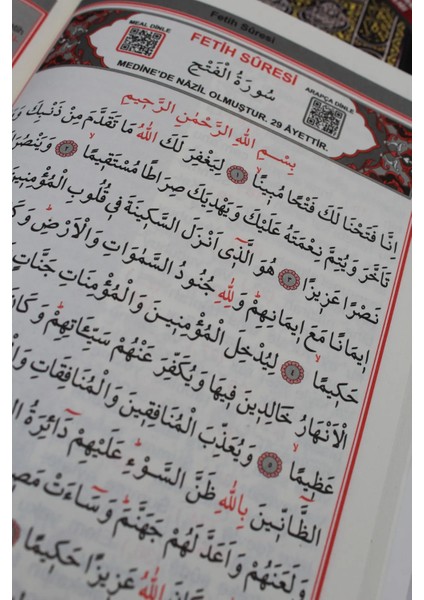 Fetih Sûresi
MEAL DİNLE
FETİH SÛRESİ
ARAPÇA DİNLE
سُورَةُ الْفَتْحِ
MEDİNE'DE NÂZİL OLMUŞTUR. 29 ÂYETTİR.
بِسْمِ اللهِ الرَّحْمٰنِ الرَّحِيمِ
اِنَّا فَتَحْنَا لَكَ فَتْحًا مُبِينًاۙ ﴿١﴾ لِيَغْفِرَ لَكَ اللهُ مَا تَقَدَّمَ مِنْ ذَنْبِكَ وَمَا
تَاَخَّرَ وَيُتِمَّ نِعْمَتَهُ عَلَيْكَ وَيَهْدِيَكَ صِرَاطًا مُسْتَقِيمًاۙ ﴿٢﴾ وَيَنْصُرَكَ
نَصْرًا عَزِيزًا ﴿٣﴾ هُوَ الَّذٓى اَنْزَلَ السَّكِينَةَ فِى قُلُوبِ الْمُؤْمِنِينَ
اِيمَانًا مَعَ اِيمَانِهِمْۜ وَلِلّٰهِ جُنُودُ السَّمٰوَاتِ وَالْاَرْضِۜ
حَكِيمًاۙ ﴿٤﴾ لِيُدْخِلَ الْمُؤْمِنِينَ وَالْمُؤْمِنَاتِ جَنَّاتٍ
الْاَنْهَارُ خَالِدِينَ فِيهَا وَيُكَفِّرَ عَنْهُمْ سَيِّئَاتِهِمْۜ وَكَانَ
عَظِيمًاۙ ﴿٥﴾ وَيُعَذِّبَ الْمُنَافِقِينَ وَالْمُنَافِقَاتِ
الظَّٓانِّينَ بِاللهِ ظَنَّ السَّوْءِۜ عَلَيْهِمْ دَٓائِرَةُ
وَلَعَنَهُمْ وَاَعَدَّ لَهُمْ جَهَنَّمَۜ وَسَٓاءَتْ
اللهُ عَزِيزًا حَكِيمًا